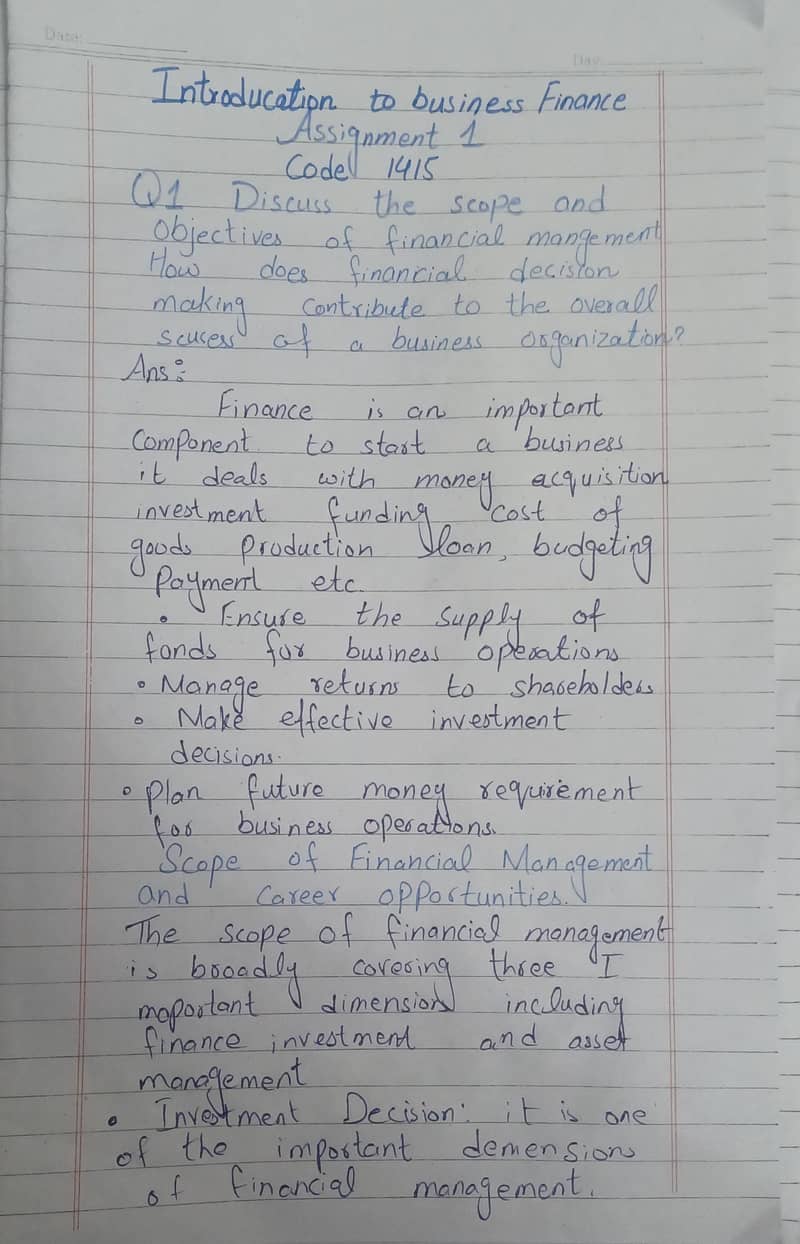 Date:
Day
Introducation to business Finance
Assignment 1
Code 1415
Q1 Discuss the scope and
Objectives of financial mangement
How does financial decision
making contribute to the overall
scucess of a business organization?
Ans:
Finance is an important
Component to start a business
it deals with money acquisition
investment funding cost of
goods production loan, budgeting
Payment etc.
• Ensure the supply of
fonds for business operations
• Manage returns to shareholders
• Make effective investment
decisions.
• Plan future money requirement
for business operations.
Scope of Financial Management
and Career opportunities.
The scope of financial management
is broadly covering three I
maportant dimension including
finance investment and asset
management
• Investment Decision: it is one
of the important demensions
of financial management.